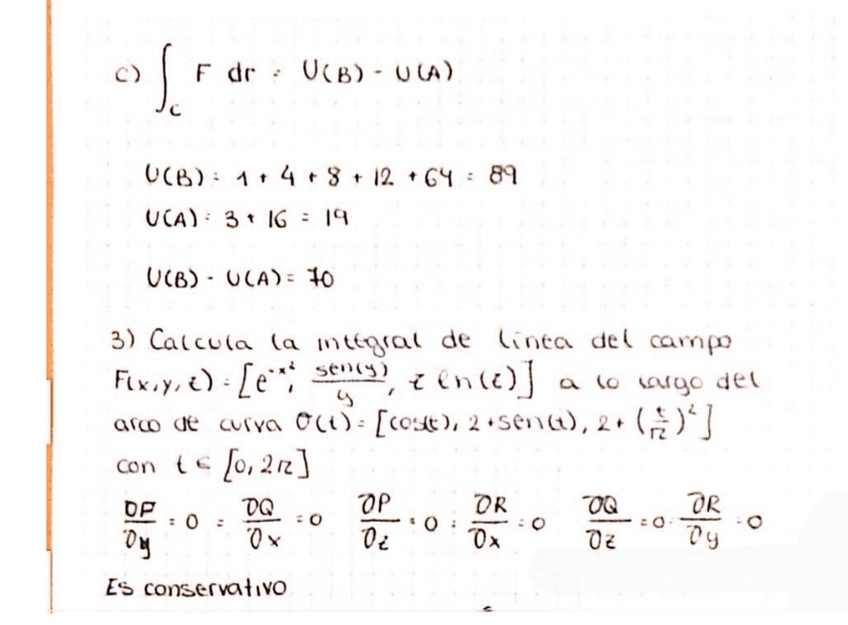 c) ∫_c F dr = U(B) - U(A)
U(B) = 1 + 4 + 8 + 12 + 64 = 89
U(A) = 3 + 16 = 19
U(B) - U(A) = 70
3) Calcula la integral de línea del campo
F(x,y,z) = [e^-x², sen(y)/y, z ln(z)] a lo largo del
arco de curva σ(t) = [cos(t), 2+sen(t), 2+(t/π)²]
con t ∈ [0, 2π]
∂P/∂y = 0 = ∂Q/∂x = 0 ∂P/∂z = 0 = ∂R/∂x = 0 ∂Q/∂z = 0 = ∂R/∂y = 0
Es conservativo